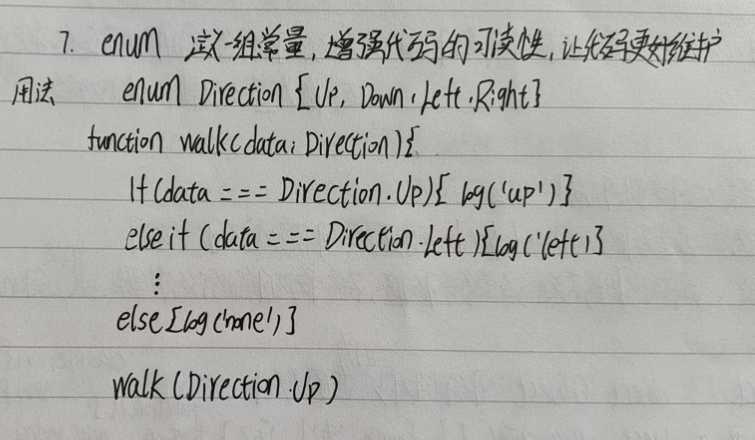 7. enum 定义一组常量,增强代码的可读性,让代码更好维护
用法 enum Direction {Up, Down, Left, Right}
function walk(data: Direction){
If(data === Direction.Up){ log('up')}
else if (data === Direction.Left){log('left')}
⋮
else{log('none')}
walk(Direction.Up)